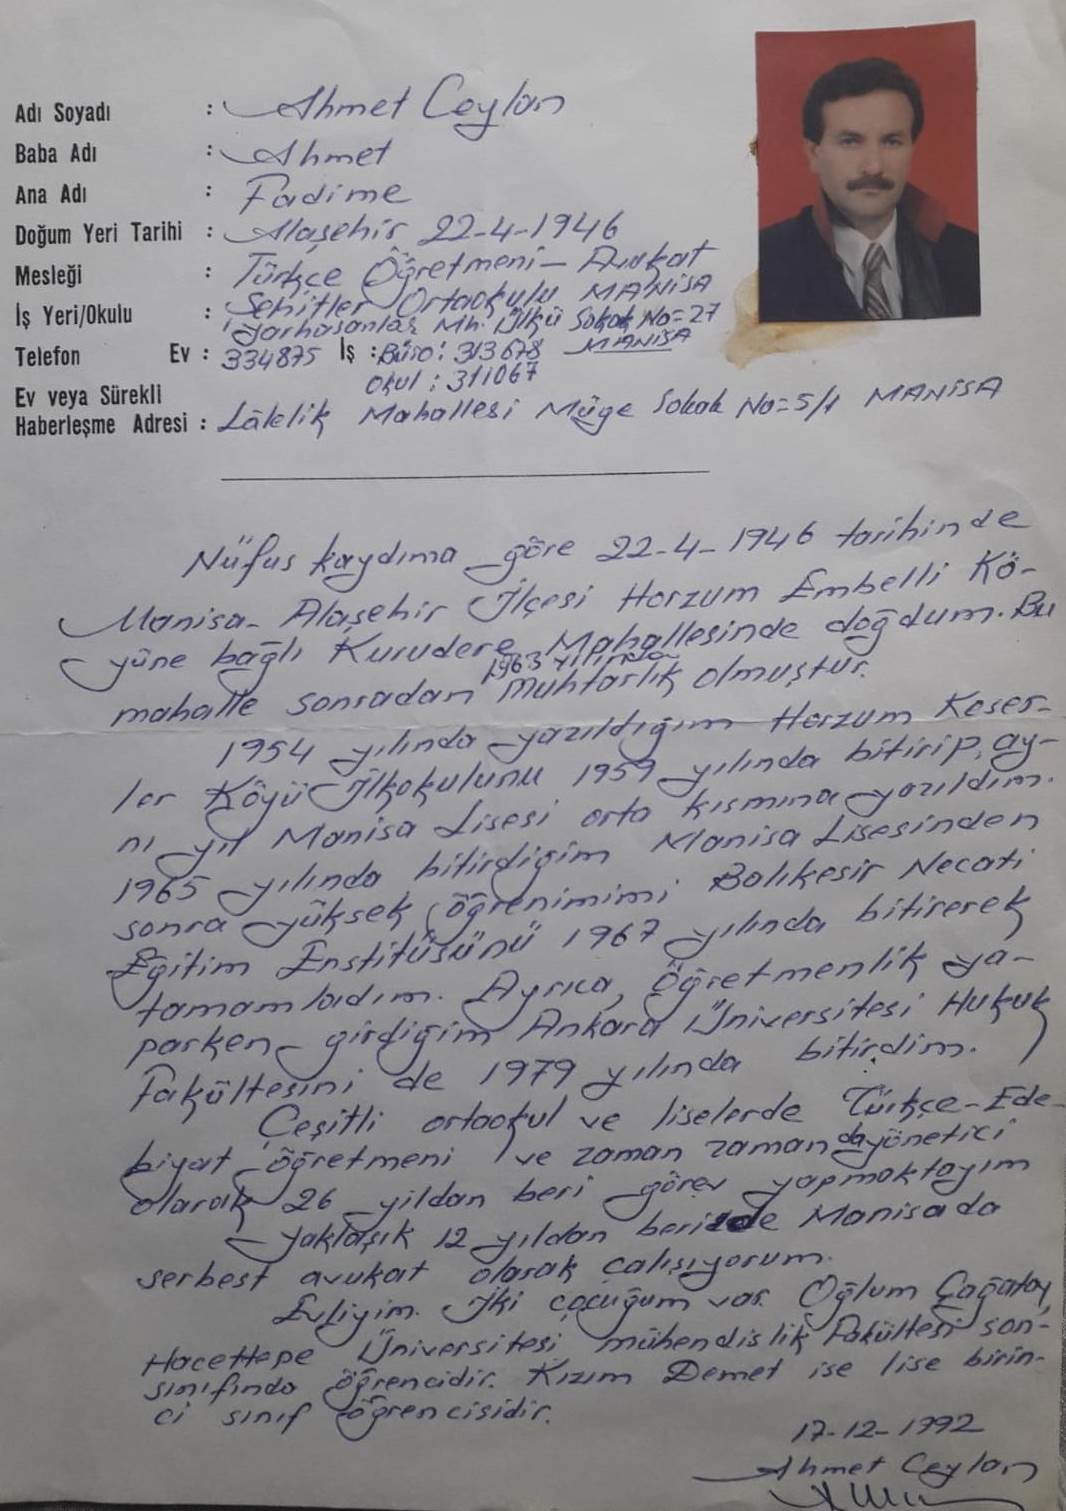 Adı Soyadı : Ahmet Ceylan
Baba Adı : Ahmet
Ana Adı : Fadime
Doğum Yeri Tarihi : Alaşehir 22-4-1946
Mesleği : Türkçe Öğretmeni - Avukat
İş Yeri/Okulu : Şehitler Ortaokulu MANİSA
Yarhasanlar Mh. Ülkü Sokak No=27
MANİSA
Telefon Ev : 334875 İş : Büro: 313678
Okul : 311067
Ev veya Sürekli
Haberleşme Adresi : Lâlelik Mahallesi Müge Sokak No=5/1 MANİSA
Nüfus kaydıma göre 22-4-1946 tarihinde
Manisa-Alaşehir İlçesi Horzum Embelli Kö-
yüne bağlı Kurudere Mahallesinde doğdum. Bu
mahalle sonradan 1963 yılında Muhtarlık olmuştur.
1954 yılında yazıldığım Horzum Keser-
ler Köyü İlkokulunu 1959 yılında bitirip, ay-
nı yıl Manisa Lisesi orta kısmına yazıldım.
1965 yılında bitirdiğim Manisa Lisesinden
sonra yüksek öğrenimimi Balıkesir Necati
Eğitim Enstitüsünü 1967 yılında bitirerek
tamamladım. Ayrıca, Öğretmenlik ya-
parken girdiğim Ankara Üniversitesi Hukuk
Fakültesini de 1979 yılında bitirdim.
Çeşitli ortaokul ve liselerde Türkçe-Ede-
biyat öğretmeni ve zaman zaman da yönetici
olarak 26 yıldan beri görev yapmaktayım
Yaklaşık 12 yıldan beri de Manisada
serbest avukat olarak çalışıyorum.
Evliyim. İki çocuğum var. Oğlum Çağatay,
Hacettepe Üniversitesi mühendislik Fakültesi son-
sınıfında öğrencidir. Kızım Demet ise lise birin-
ci sınıf öğrencisidir.
17-12-1992
Ahmet Ceylan